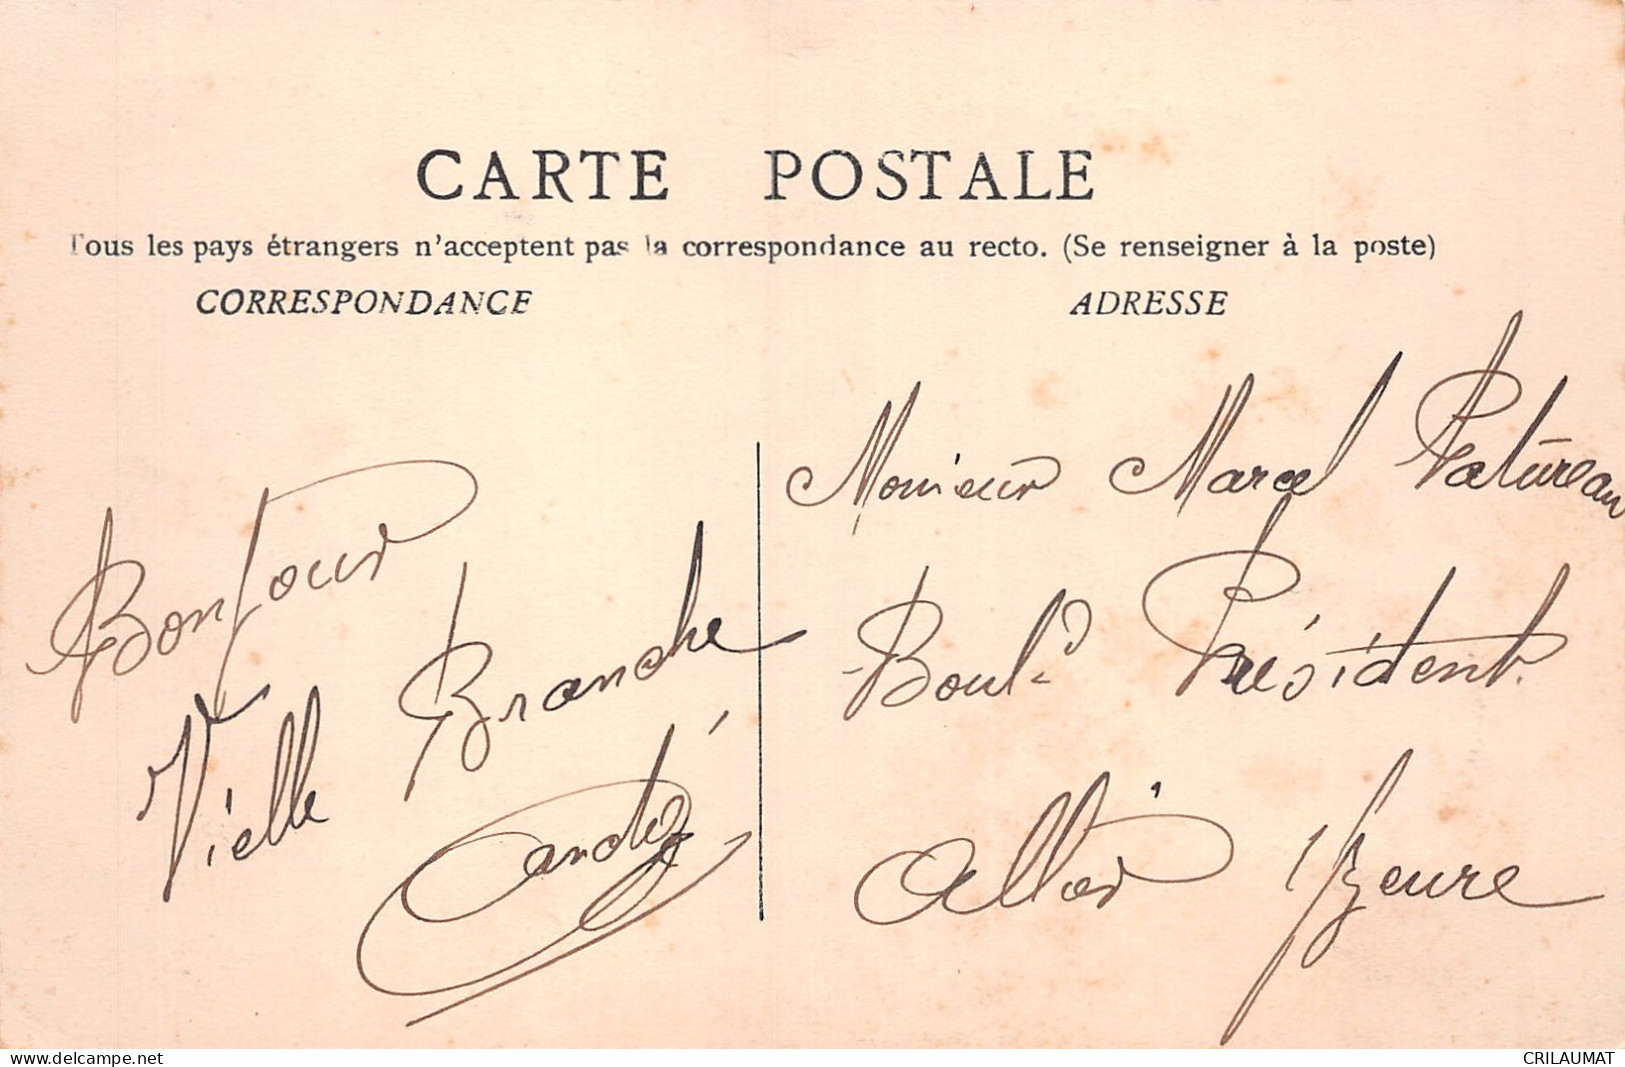 CARTE POSTALE
Tous les pays étrangers n'acceptent pas la correspondance au recto. (Se renseigner à la poste)
CORRESPONDANCE
ADRESSE
Bonjour
Vielle Branche
André
Monsieur Marcel Patureau
Boul.d Président
Allier Yzeure
www.delcampe.net
CRILAUMAT